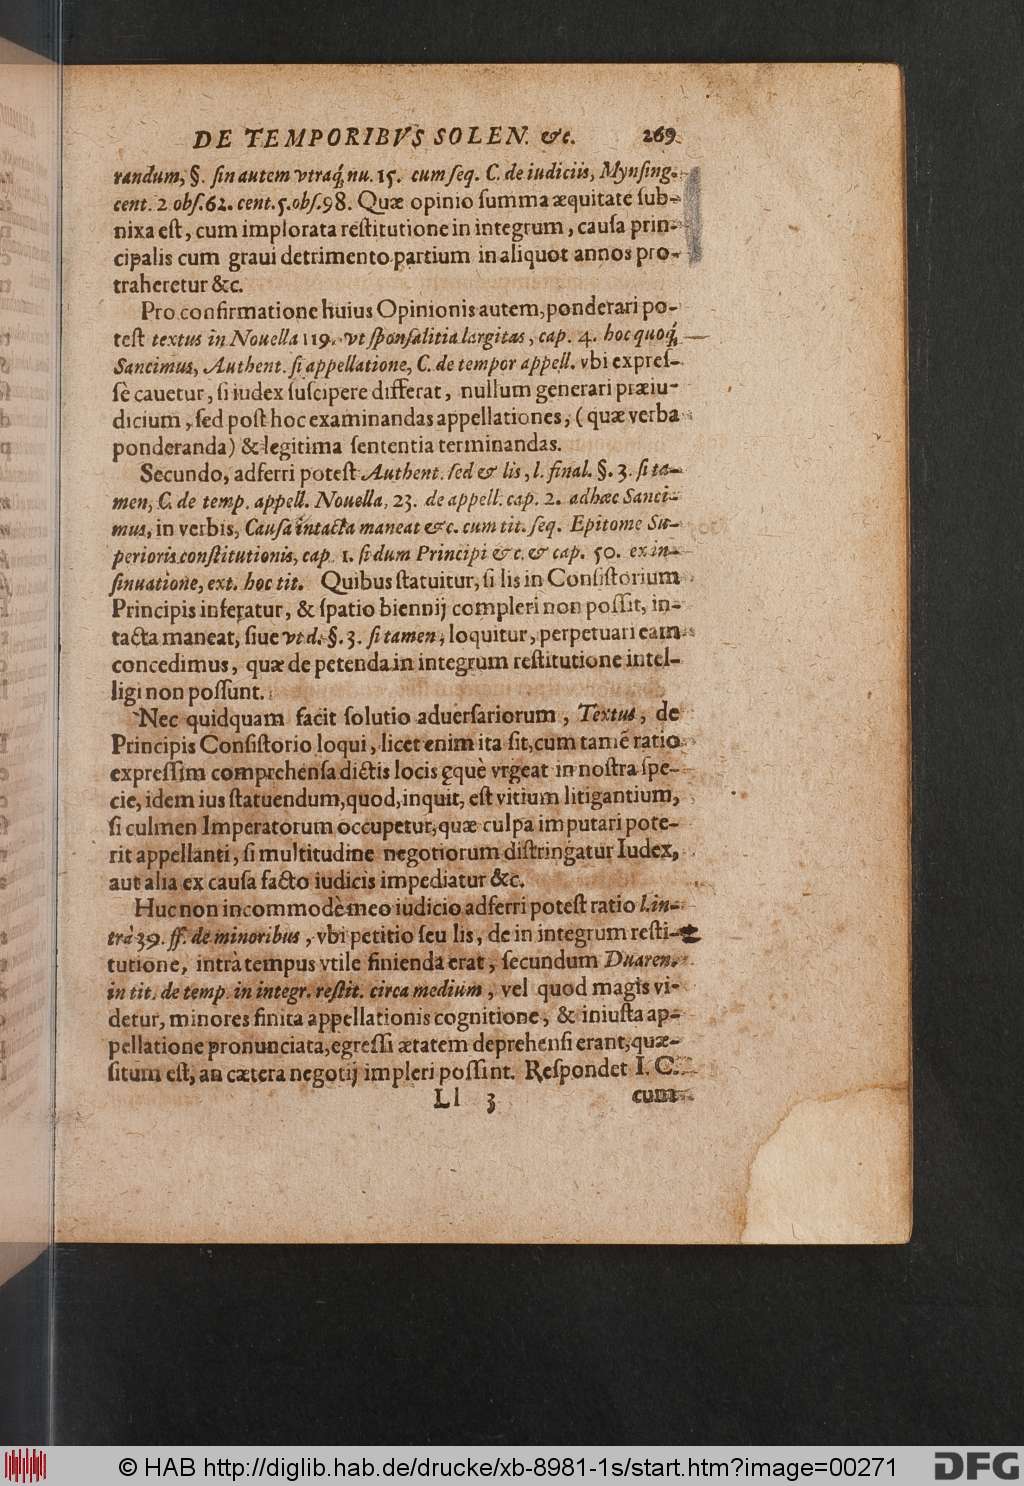 DE TEMPORIBVS SOLEN. &c. 269
randum, §. ſin autem vtraq́; nu. 15. cum ſeq. C. de iudiciis, Mynſing.
cent. 2 obſ. 62. cent. 5. obſ. 98. Quæ opinio ſumma æquitate ſub-
nixa eſt, cum implorata reſtitutione in integrum, cauſa prin-
cipalis cum graui detrimento partium in aliquot annos pro-
traheretur &c.
Pro confirmatione huius Opinionis autem, ponderari po-
teſt textus in Nouella 119. vt ſponſalitia largitas, cap. 4. hoc quoq́;
Sancimus, Authent. ſi appellatione, C. de tempor appell. vbi expreſ-
ſè cauetur, ſi iudex ſuſcipere differat, nullum generari præiu-
dicium, ſed poſt hoc examinandas appellationes, (quæ verba
ponderanda) & legitima ſententia terminandas.
Secundo, adferri poteſt Authent. ſed & lis, l. final. §. 3. ſi ta-
men, C. de temp. appell. Nouella, 23. de appell. cap. 2. adhæc Sanci-
mus, in verbis, Cauſa intacta maneat &c. cum tit. ſeq. Epitome Su-
perioris conſtitutionis, cap. 1. ſi dum Principi &c. & cap. 50. ex in-
ſinuatione, ext. hoc tit. Quibus ſtatuitur, ſi lis in Conſiſtorium
Principis inferatur, & ſpatio biennij compleri non poſſit, in-
tacta maneat, ſiue vt d. §. 3. ſi tamen, loquitur, perpetuari eam
concedimus, quæ de petenda in integrum reſtitutione intel-
ligi non poſſunt.
Nec quidquam facit ſolutio aduerſariorum, Textus, de
Principis Conſiſtorio loqui, licet enim ita ſit, cum tamẽ ratio
expreſſim comprehenſa dictis locis ęquè vrgeat in noſtra ſpe-
cie, idem ius ſtatuendum, quod, inquit, eſt vitium litigantium,
ſi culmen Imperatorum occupetur, quæ culpa imputari pote-
rit appellanti, ſi multitudine negotiorum diſtringatur Iudex,
aut alia ex cauſa facto iudicis impediatur &c.
Huc non incommodè meo iudicio adferri poteſt ratio l. in-
trà 39. ff. de minoribus, vbi petitio ſeu lis, de in integrum reſti-
tutione, intrà tempus vtile finienda erat, ſecundum Duaren.
in tit. de temp. in integr. reſtit. circa medium, vel quod magis vi-
detur, minores finita appellationis cognitione, & iniuſta ap-
pellatione pronunciata, egreſſi ætatem deprehenſi erant, quæ-
ſitum eſt, an cætera negotij impleri poſſint. Reſpondet I. C.
Ll 3 cum
© HAB http://diglib.hab.de/drucke/xb-8981-1s/start.htm?image=00271 DFG